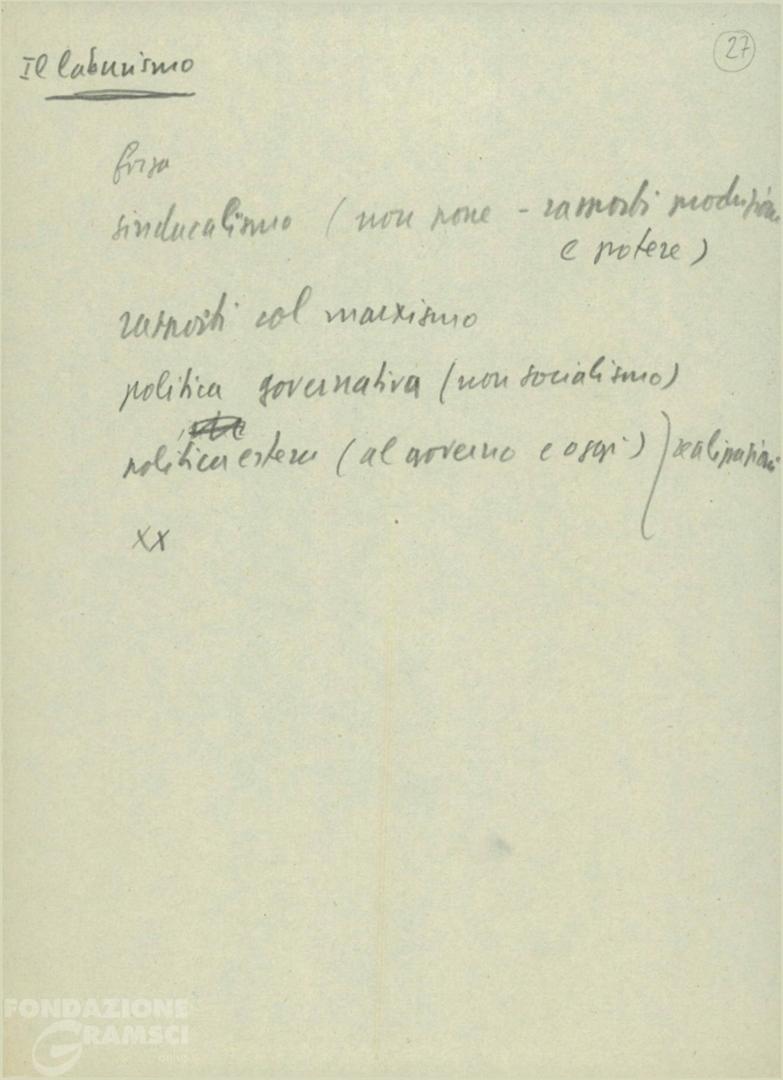 Il laburismo
27
forza
sindacalismo (non pone - rapporti produzione
e potere)
rapporti col marxismo
politica governativa (non socialismo)
politica estera (al governo e oggi) realizzazioni
xx
FONDAZIONE
GRAMSCI
onlus